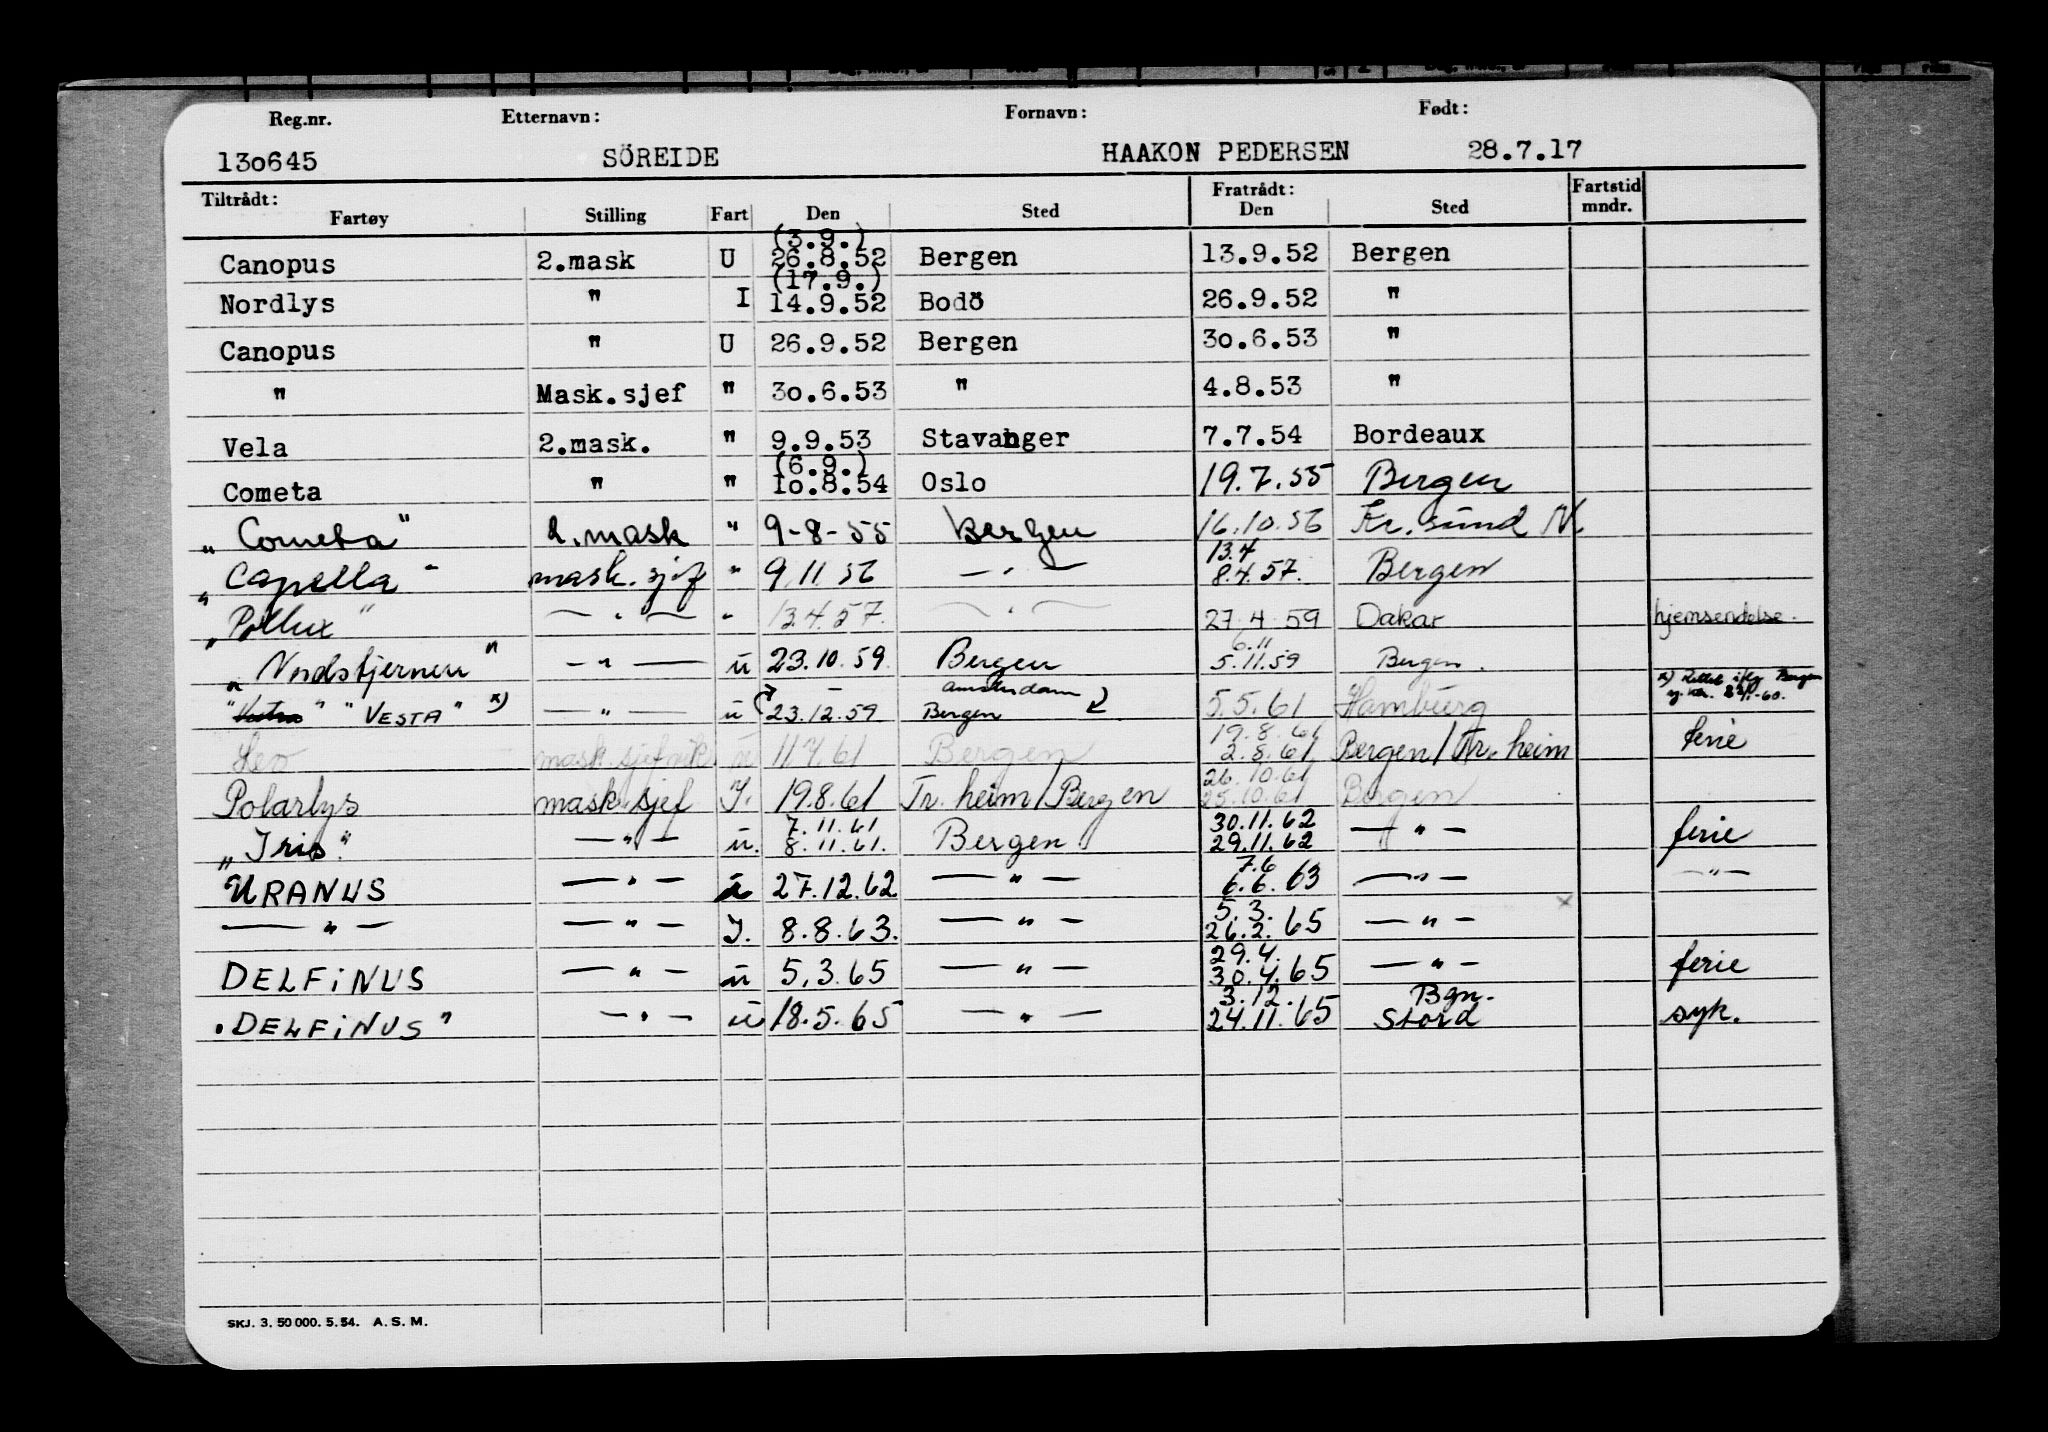 Reg.nr. Etternavn: Fornavn: Født:
130645 SÖREIDE HAAKON PEDERSEN 28.7.17
Tiltrådt: Fratrådt: Fartstid
Fartøy Stilling Fart Den Sted Den Sted mndr.
(3.9.)
Canopus 2.mask U 26.8.52 Bergen 13.9.52 Bergen
(17.9.)
Nordlys " I 14.9.52 Bodö 26.9.52 "
Canopus " U 26.9.52 Bergen 30.6.53 "
" Mask.sjef " 30.6.53 " 4.8.53 "
Vela 2.mask. " 9.9.53 Stavanger 7.7.54 Bordeaux
(6.9.)
Cometa " " 10.8.54 Oslo 19.7.55 Bergen
„Cometa" 2. mask " 9-8-55 Bergen 16.10.56 Kr. sund N
13.4
„Capella" mask. sjef " 9.11 56 — " — 8.4.57. Bergen
„Pollux" — " — " 13.4.57. — " — 27.4.59 Dakar hjemsendelse.
6.11
„Nordstjernen" — " — u 23.10.59. Bergen 5.11.59 Bergen.
Amsterdam
"Vestra" "VESTA" x) — " — u 23.12.59 Bergen 5.5.61 Hamburg x) Rettet iflg Bergen
19.8.61
Leo mask.sjef vik u 11.7.61 Bergen 2.8.61 Bergen/Tr.heim ferie
26.10.61
Polarlys mask. sjef I. 19.8.61 Tr. heim/Bergen 25.10.61 Bergen
7.11.61 30.11.62
„Iris" — " — u. 8.11.61. Bergen 29.11.62 — " — ferie
7.6
URANUS — " — u 27.12.62 — " — 6.6.63 — " — — " —
5.3.
— " — — " — I. 8.8.63. — " — 26.2.65 — " — x
29.4.
DELFINUS — " — u 5.3.65 — " — 30.4.65 — " — ferie
3.12. Bgn.
"DELFINUS" — " — u 18.5.65 — " — 24.11.65 Stord syk.
SKJ. 3. 50 000. 5. 54. A. S. M.